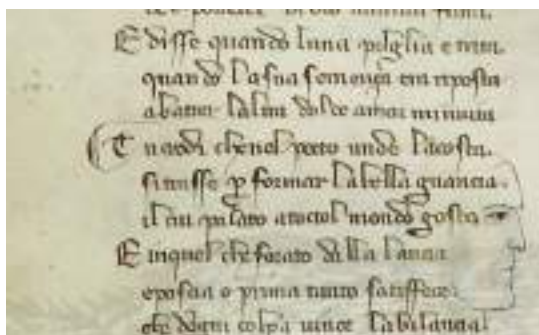 E disse quando luna paglia e trita
quando la sua semença e gia riposta
a batter laltra dolce amor minvita
Tu credi che nel pecto unde la costa
si trasse p formar la bella guancia
il cui palato a tuctol mondo costa
E in quel che forato dalla lancia
e poscia e prima tanto satisfece
che dogni colpa vince la bilancia